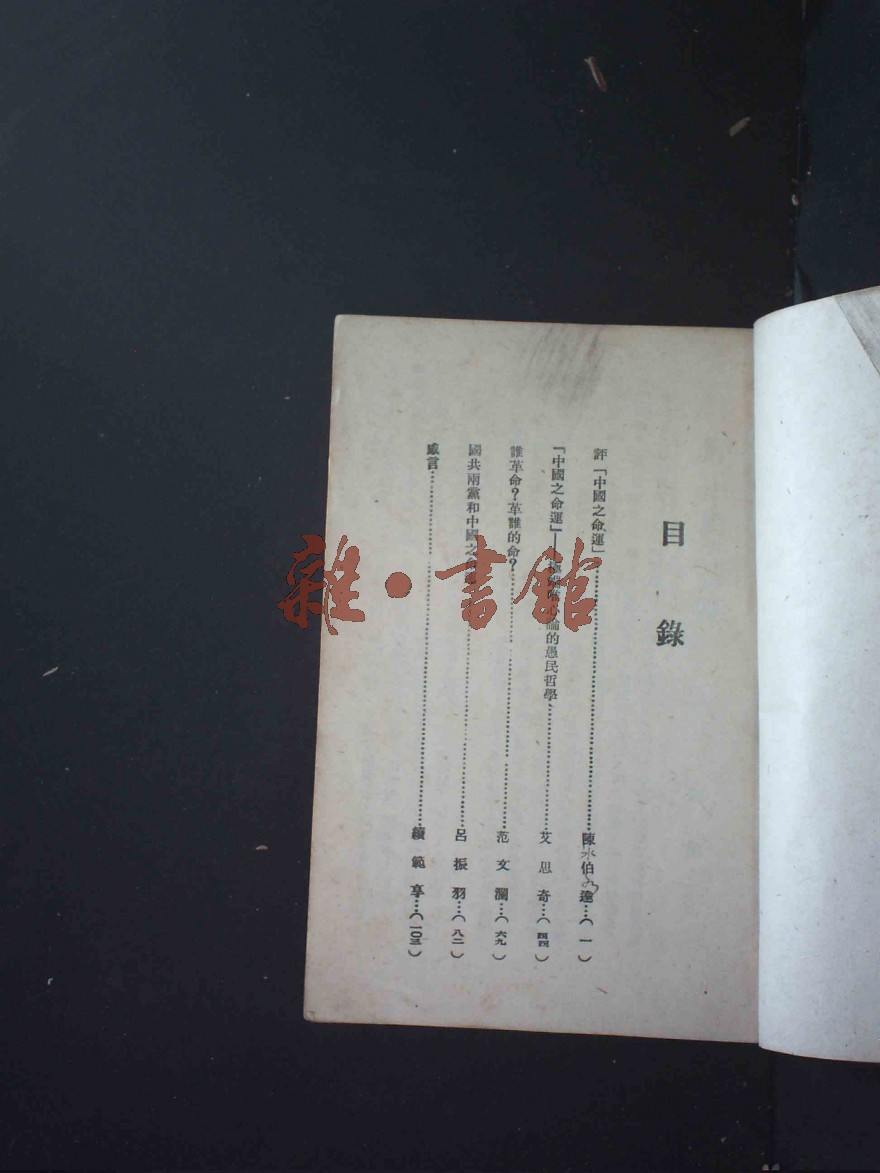 目錄
評「中國之命運」……陳伯達…(一)
「中國之命運」——極端唯心論的愚民哲學……艾思奇…(四四)
誰革命？革誰的命？……范文瀾…(六九)
國共兩黨和中國之命運……呂振羽…(八二)
感言……續範亭…(一〇三)
雜·書館